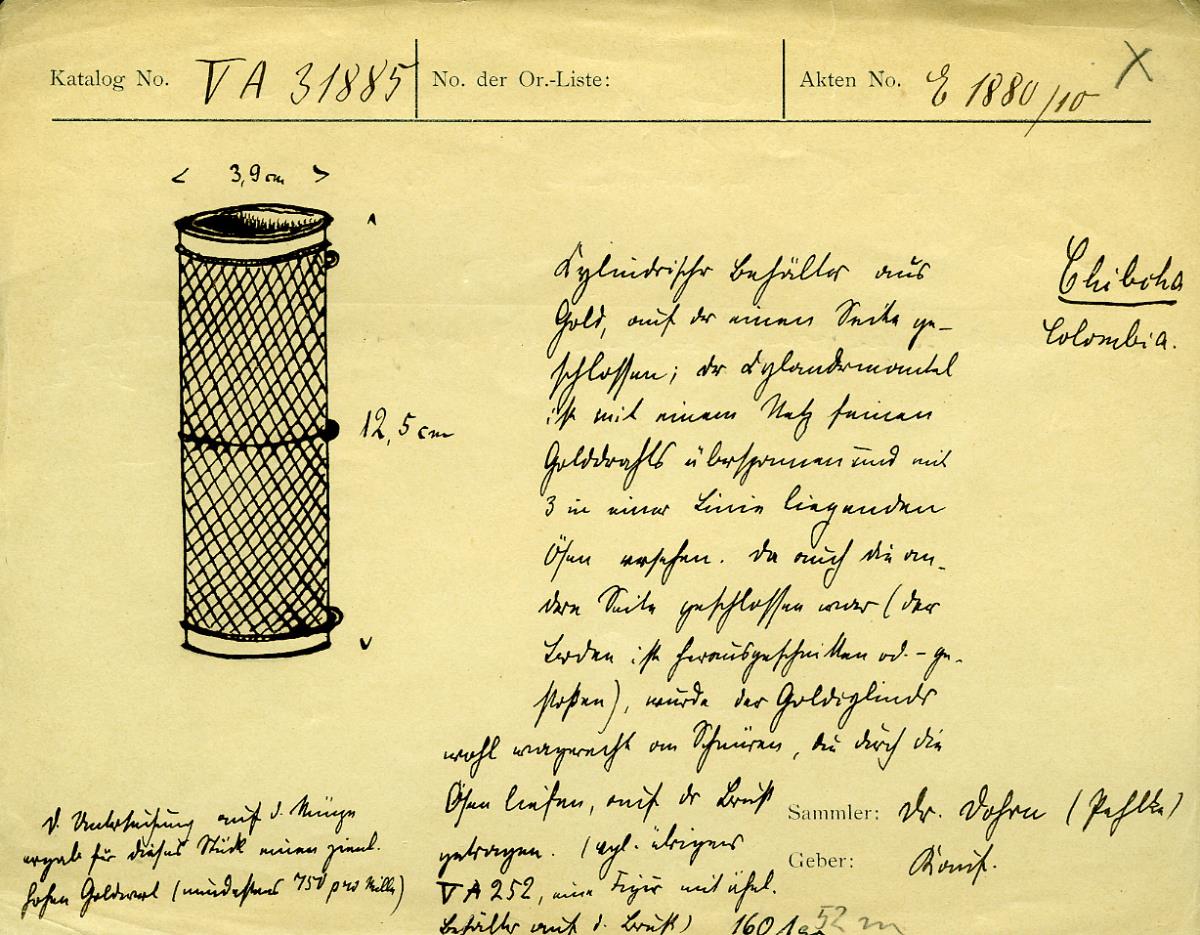 Katalog No. V A 31885
No. der Or.-Liste:
Akten No. E 1880/10
X
< 3,9 cm >
12,5 cm
Chibcha
Colombia.
Cylindrischer Behälter aus
Gold, auf der einen Seite ge-
schlossen; der Cylindermantel
ist mit einem Netz feinen
Golddrahts übersponnen und mit
3 in einer Linie liegenden
Ösen versehen. Da auch die an-
dere Seite geschlossen war (der
Boden ist herausgeschnitten od. - ge-
stoßen), wurde der Goldcylinder
wohl wagerecht an Schnüren, die durch die
Ösen liefen, auf der Brust
getragen. (vgl. übrigens
V A 252, eine Figur mit ähnl.
Behälter auf d. Brust)
160
52
d. Untersuchung auf d. Münze
ergab für dieses Stück einen zieml.
hohen Goldwert (mindestens 750 pro Mille)
Sammler: Dr. Dohrn (Pehlke)
Geber: Kauf.